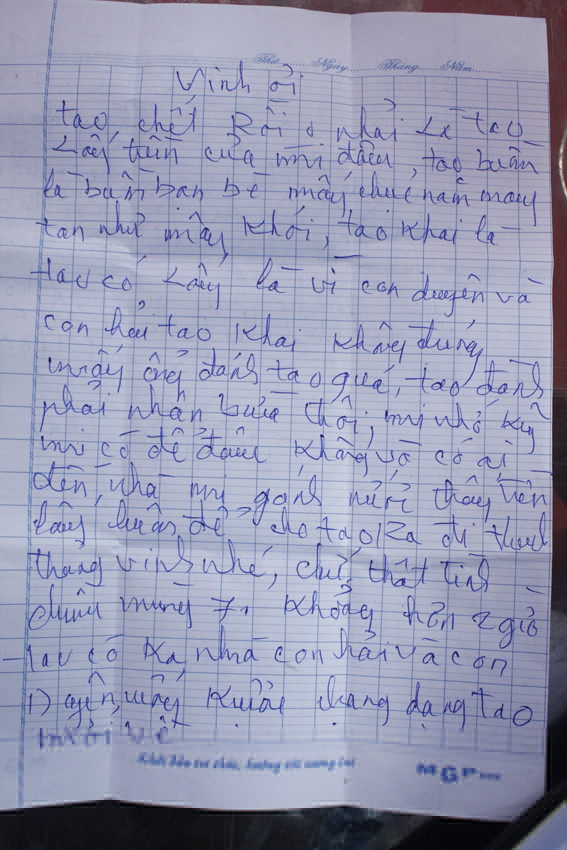 Thứ Ngày Tháng Năm
Vinh ơi
tao chết Rồi o nhải Là tao
Lấy tiền của mi đâu, tao buồn
là buồn bạn bè mấy chục năm nay
tan như mây khói, tao khai là
tao có Lấy là vì con duyên và
con hải tao khai không đúng
mấy ông đánh tao quá, tao đành
phải nhận bừa thôi, mi nhớ kỹ
mi có để đâu không và có ai
đến nhà mi gánh nước thấy tiền
lấy luôn để cho tao Ra đi
thằng vinh nhé, chứ thật tình
chiều mùng 7, không hơn 2 giờ
tao có Ra nhà con hải và con
Duyên, uống Rượu đang dạng tao
mới về
MGP